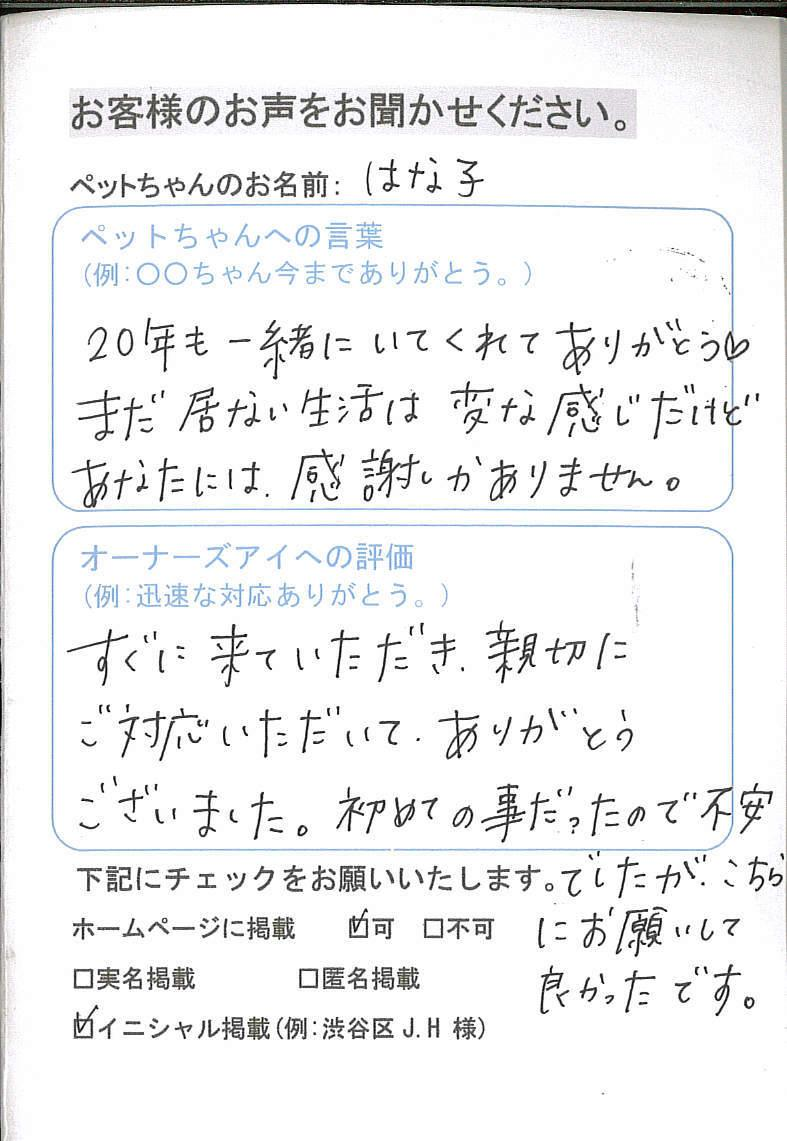 お客様のお声をお聞かせください。
ペットちゃんのお名前: はな子
ペットちゃんへの言葉
(例:〇〇ちゃん今までありがとう。)
20年も一緒にいてくれてありがとう♡
まだ居ない生活は変な感じだけど
あなたには、感謝しかありません。
オーナーズアイへの評価
(例:迅速な対応ありがとう。)
すぐに来ていただき、親切に
ご対応いただいて、ありがとう
ございました。初めての事だったので不安
でしたが、こちら
にお願いして
良かったです。
下記にチェックをお願いいたします。
ホームページに掲載 ☑可 □不可
□実名掲載 □匿名掲載
☑イニシャル掲載(例:渋谷区J.H 様)